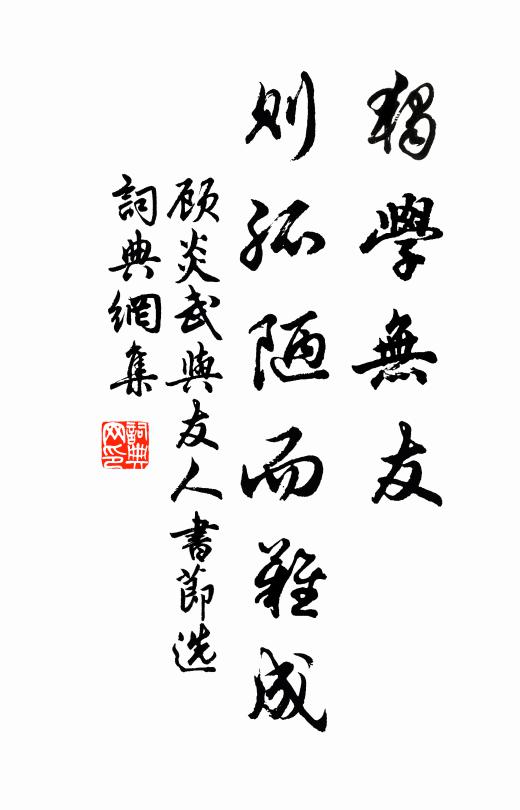 獨學無友
則孤陋而難成
顾炎武與友人書節选
詞典網集
詞典网印